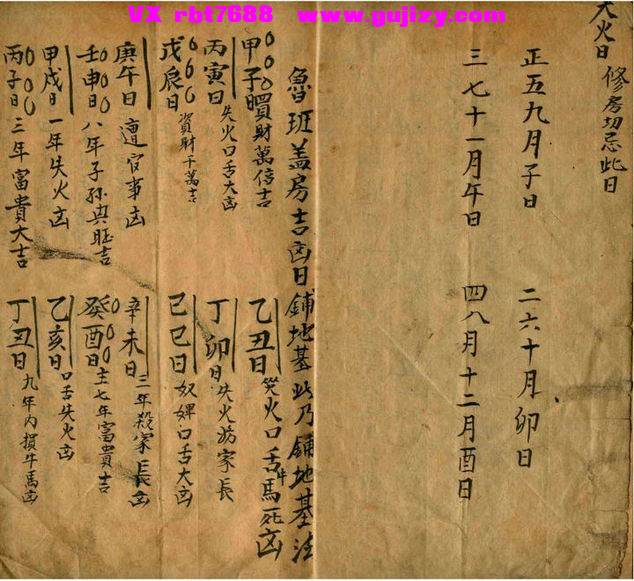 VX rbt7688 www.gujizy.com
大火日 修房切忌此日
正五九月子日 二六十月卯日
三七十一月午日 四八月十二月酉日
魯班盖房吉凶日鋪地基此乃鋪地基法
甲子日 買財萬倍吉
乙丑日 火口舌牛馬死凶
丙寅日 失火口舌大凶
丁卯日 失火妨家長
戊辰日 資財千萬吉
己巳日 奴婢口舌大凶
庚午日 遭官事凶
辛未日 三年殺家長凶
壬申日 八年子孫興旺吉
癸酉日 主七年富貴吉
甲戌日 一年失火凶
乙亥日 口舌失火凶
丙子日 三年富貴大吉
丁丑日 九年内損牛馬凶